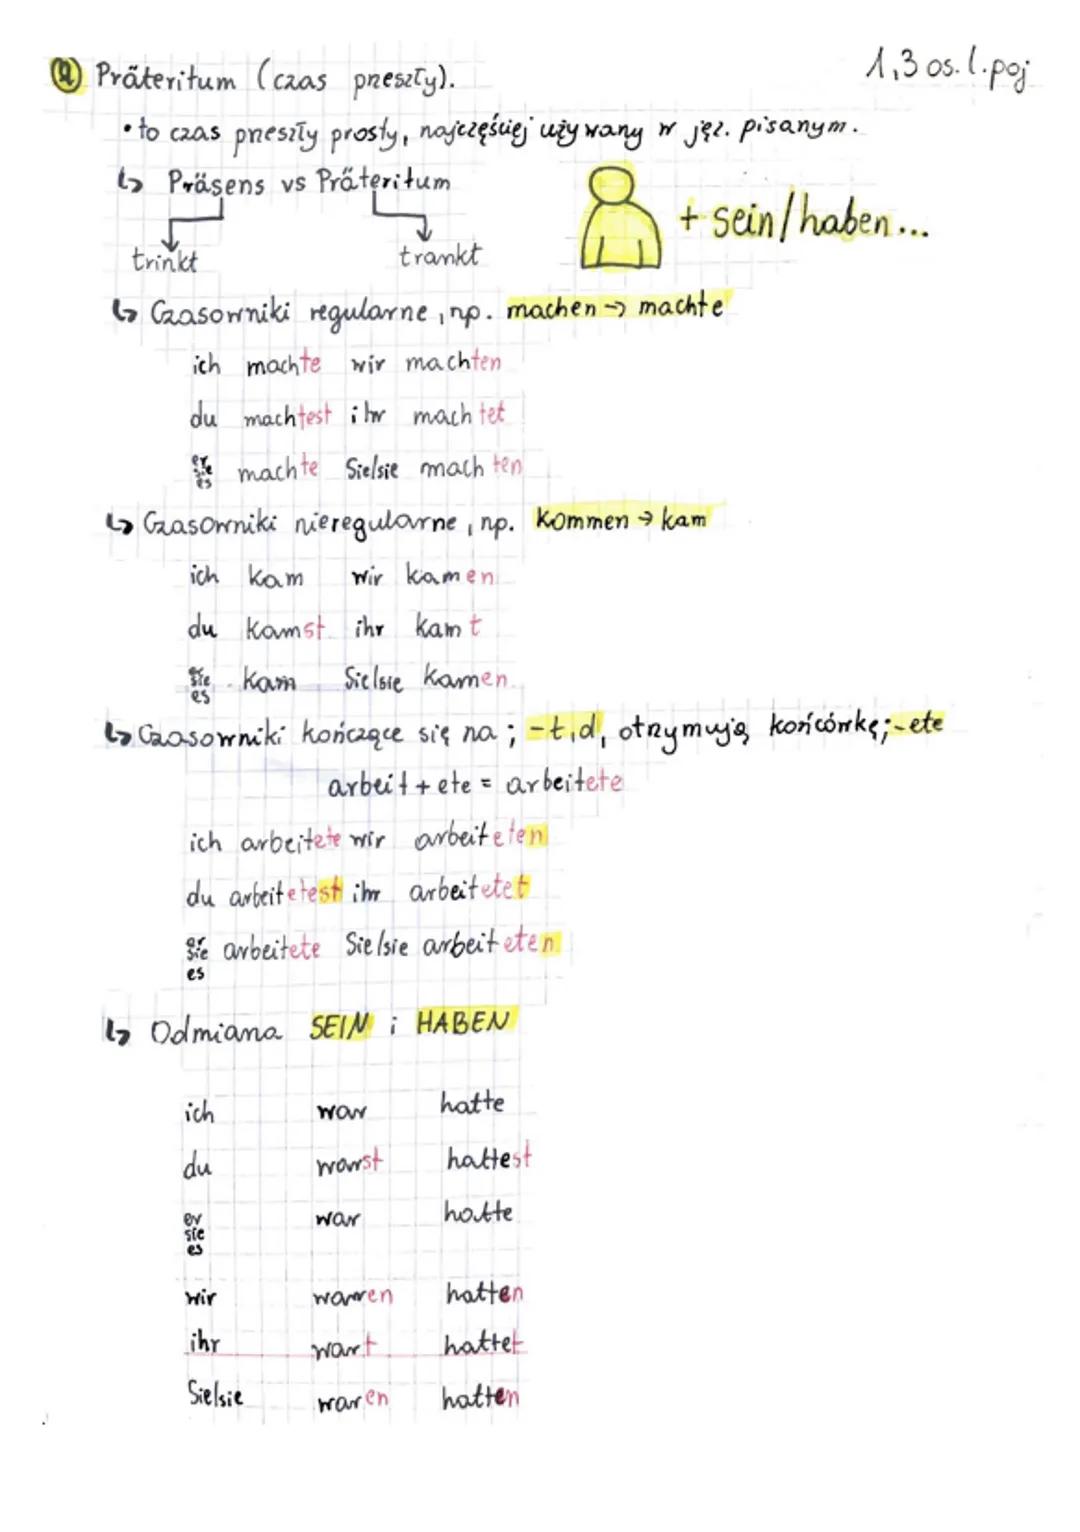 ② Präteritum (czas przeszły).
1,3 os. l. poj
• to czas przeszły prosty, najczęściej używany w jęz. pisanym.
↳ Präsens vs Präteritum
+ sein/haben...
trinkt trankt
↳ Czasowniki regularne, np. machen → machte
ich machte wir machten
du machtest ihr machtet
er sie es machte Sie/sie machten
↳ Czasowniki nieregularne, np. kommen → kam
ich kam wir kamen
du kamst ihr kamt
er sie es kam Sie/sie kamen
↳ Czasowniki kończące się na ; -t,d, otrzymują końcówkę; -ete
arbeit + ete = arbeitete
ich arbeitete wir arbeiteten
du arbeitetest ihr arbeitetet
er sie es arbeitete Sie/sie arbeiteten
↳ Odmiana SEIN i HABEN
ich war hatte
du warst hattest
er sie es war hatte
wir waren hatten
ihr wart hattet
Sie/sie waren hatten